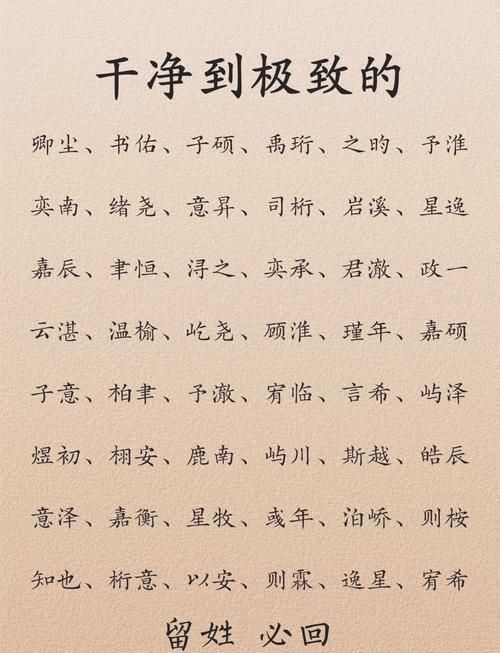 干净到极致的
卿尘、书佑、子硕、禹珩、之昀、予淮
奕南、绪尧、意昇、司桁、岩溪、星逸
嘉辰、聿恒、浔之、奕承、君澈、政一
云湛、温榆、屹尧、顾淮、瑾年、嘉硕
子意、柏聿、予澈、宥临、言希、屿泽
煜初、栩安、鹿南、屿川、斯越、皓辰
意泽、嘉衡、星牧、彧年、泊峤、则桉
知也、桁意、以安、则霖、逸星、宥希
留姓 必回